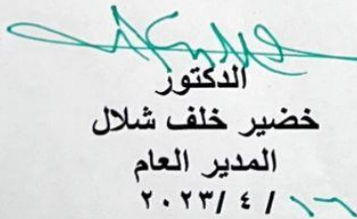 الدكتور
خضير خلف شلال
المدير العام
١٦ / ٤ /٢٠٢٣